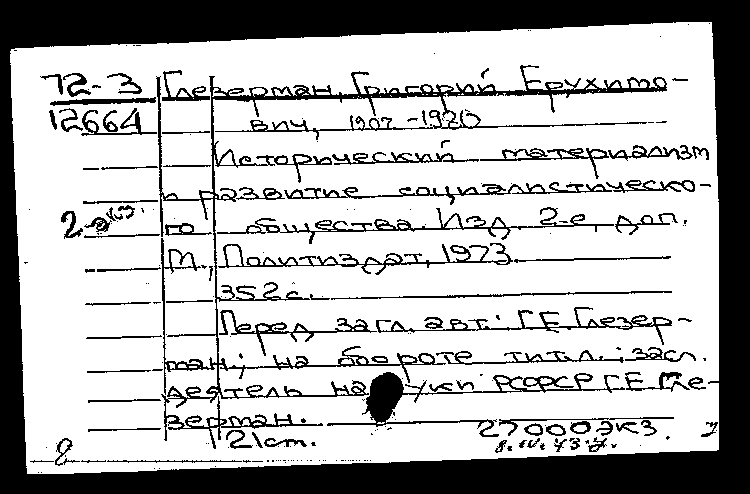 72-3 Глезерман, Григорий Ерухимо-
12664 вич, 1907-1980
Исторический материализм
и развитие социалистическо-
2-экз. го общества. Изд. 2-е, доп.
М., Политиздат, 1973.
352 с.
Перед загл. авт.: Г.Е. Глезер-
ман; на обороте тит.л.: засл.
деятель науки РСФСР Г.Е. Гле-
зерман.
21 ст. 27000 экз.